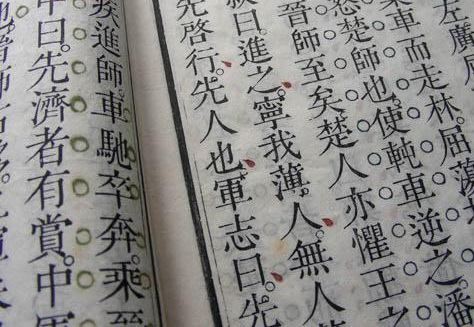 左廣屈
棄車而走林屈蕩
怒楚師也使軘車逆之潘
晉師至矣楚人亦懼王之
叔曰進之寧我薄人無人
先啓行先人也軍志曰先
矣進師車馳卒奔乘晉
中曰先濟者有賞中軍
也晉師右移